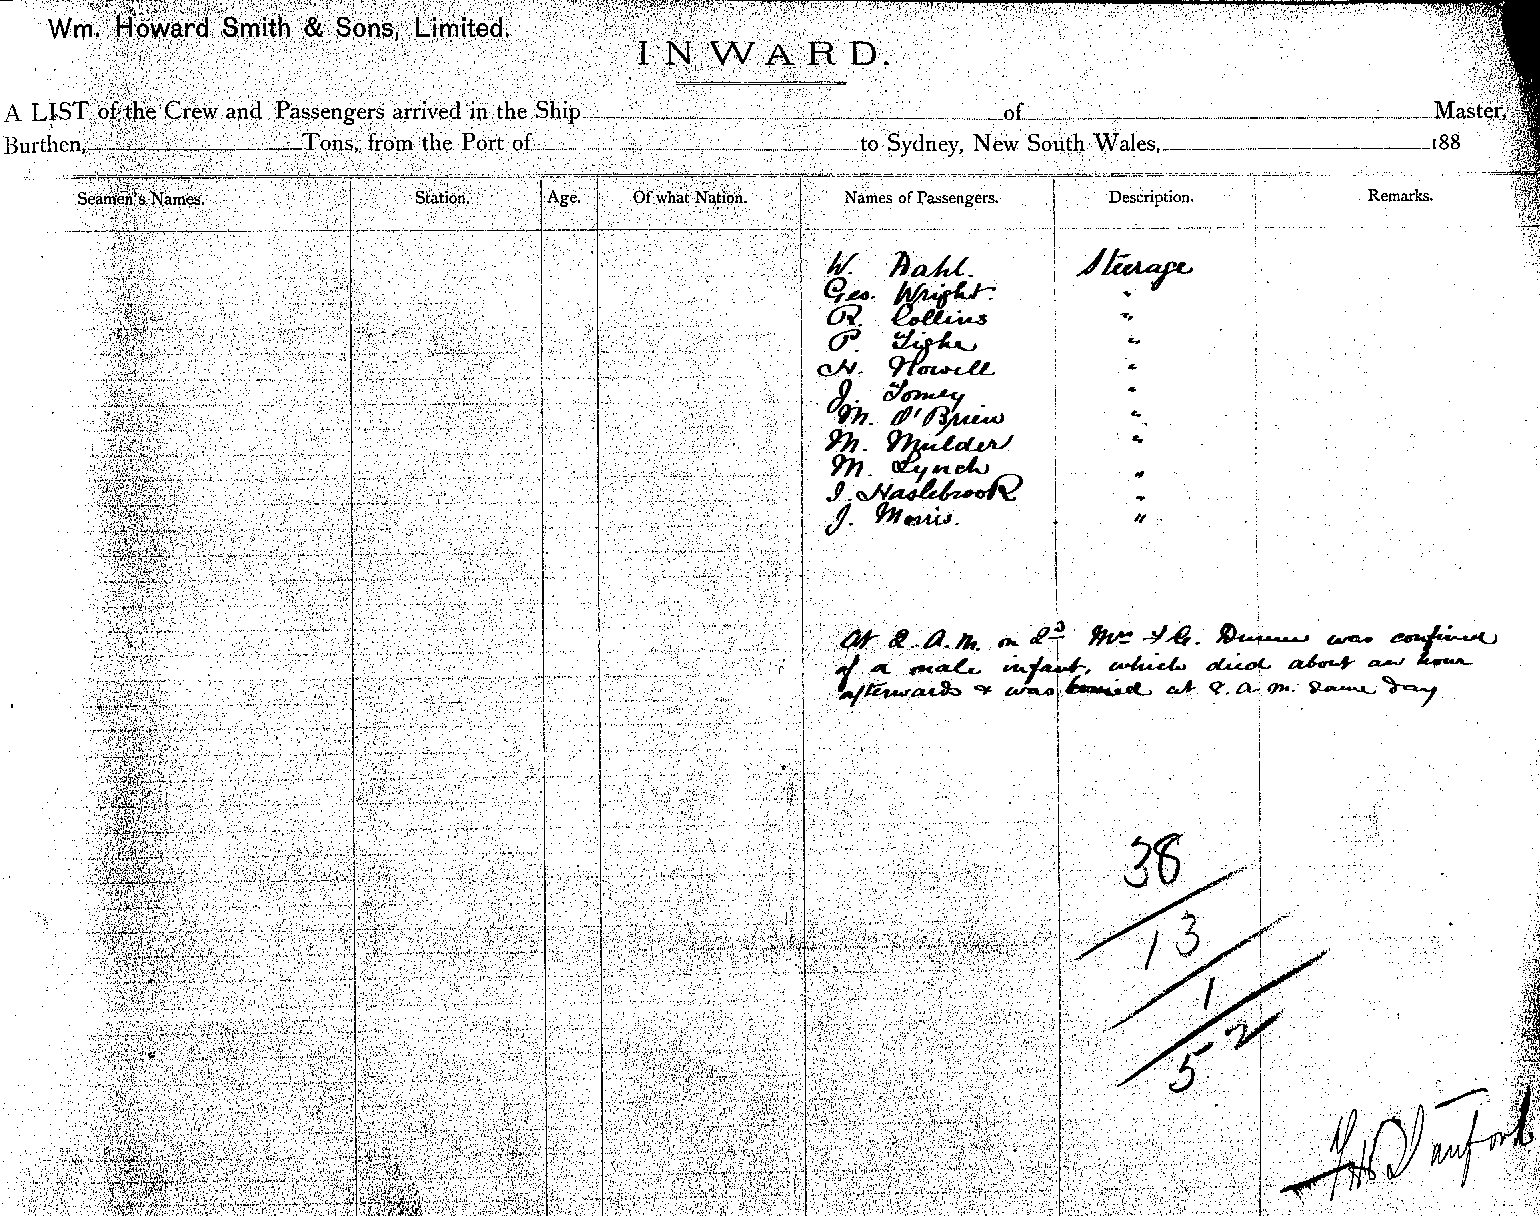 Wm. Howard Smith & Sons, Limited.
INWARD.
A LIST of the Crew and Passengers arrived in the Ship of Master,
Burthen, Tons, from the Port of to Sydney, New South Wales, 188
Seamen's Names. Station. Age. Of what Nation. Names of Passengers. Description. Remarks.
W. Dahl. Steerage
Geo. Wright. "
R. Collins "
P. Tighe "
H. Howell "
J. Tomey "
M. O'Brien "
M. Mulder "
M. Lynch "
J. Haslebrook "
J. Morris. "
At 2 A.M. on 2nd Mrs was confined
of a male infant, which died about an hour
afterwards & was buried at 8. a.m. same day
38
13
1
52